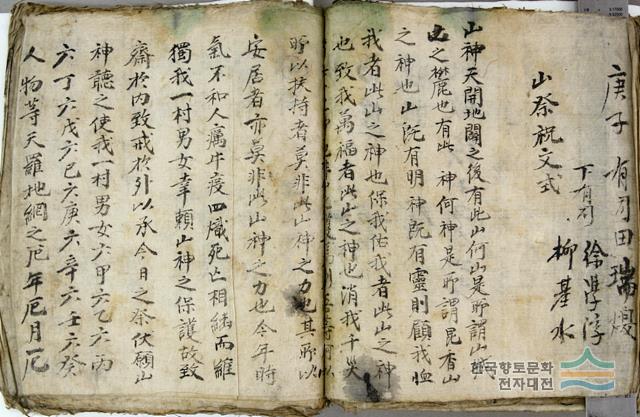 庚子 有司 田瑞
下有司 徐學淳
柳基水
山祭祝文式
山神天開地闢之後有此山何山是所謂山
之麓也有此神何神是所謂昆香山
之神也山旣有明神旣有靈則顧我恤
我者此山之神也保我佑我者此山之神
也致我萬福者此山之神也消我千災
所以扶持者莫非此山神之力也其所以
安居者亦莫非此山神之力也今年時
氣不和人癘牛疫四熾死亡相繼而維
獨我一村男女幸賴山神之保護故致
齋於內致戒於外以承今日之祭伏願山
神聽之使我一村男女六甲六乙六丙
六丁六戊六己六庚六辛六壬六癸
人物等天羅地網之厄年厄月厄
한국향토문화
전자대전